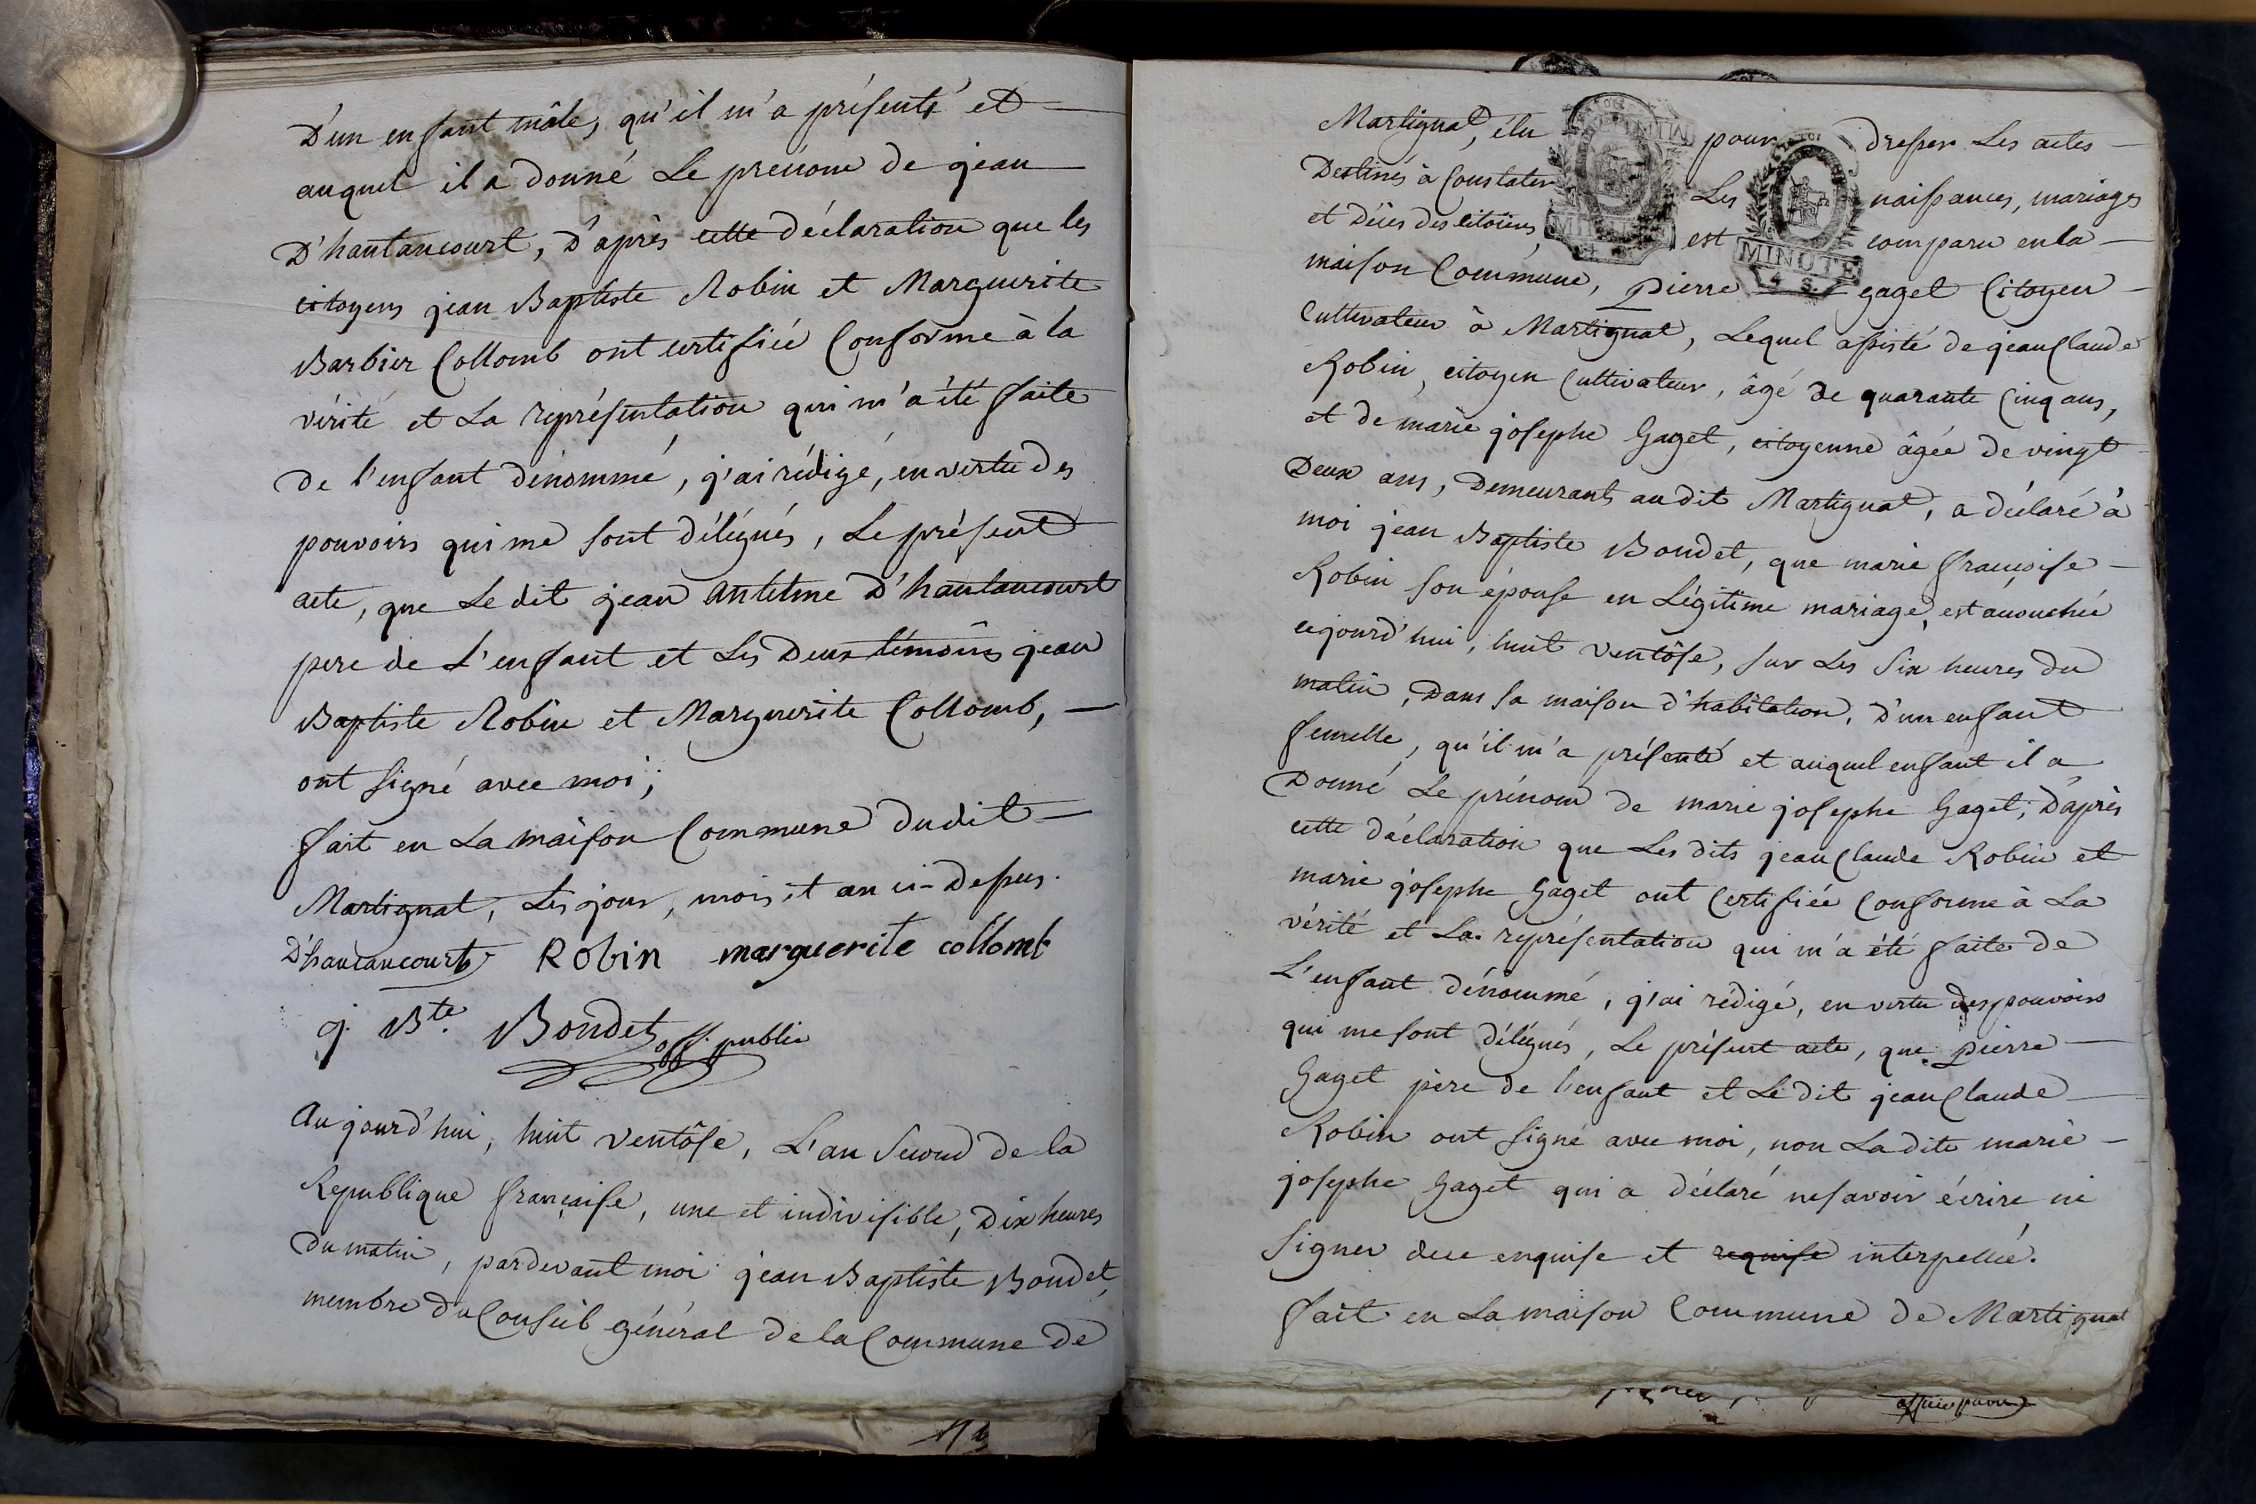 D'un enfant mâle, qu'il m'a présenté et
auquel il a donné Le prénom de jean
D'hautancourt, D'après cette déclaration que les
citoyens jean Baptiste Robin et Marguerite
Barbier Collomb ont certifiée Conforme à la
vérité et La représentation qui m'a été faite
de l'enfant dénommé, j'ai rédigé, en vertu des
pouvoirs qui me sont délégués, Le présent
acte, que Le dit jean antelme D'hautancourt
pere de L'enfant et Les Deux témoins jean
Baptiste Robin et Marguerite Collomb,
ont signé avec moi;
fait en La maison Commune dudit
Martignat, Les jour, mois et an ci-Dessus.
D'hautancourt Robin marguerite collomb
j. Bte. Bondet off. public
Aujourd'hui, huit ventôse, L'an second de la
Republique française, une et indivisible, Dix heures
du matin, pardevant moi jean Baptiste Bondet,
membre du Conseil général de la Commune de
Martignat, élu pour dresser Les actes
Destinés à Constater Les naissances, mariages
et Décès des citoïens, est comparu en la
maison Commune, Pierre gaget Citoyen
Cultivateur à Martignat, Lequel assisté de jean Claude
Robin, citoyen Cultivateur, âgé de quarante Cinq ans,
et de marie josephe Gaget, citoyenne âgée de vingt
Deux ans, Demeurants audit Martignat, a déclaré à
moi jean Baptiste Bondet, que marie françoise
Robin son épouse en Légitime mariage, est acouchée
cejourd'hui, huit ventôse, sur Les six heures du
matin, Dans sa maison d'habitation, D'un enfant
femelle, qu'il m'a présenté et auquel enfant il a
Donné Le prénom de marie josephe Gaget; D'après
cette déclaration que Les dits jean Claude Robin et
marie josephe Gaget ont Certifiée Conforme à La
vérité et La représentation qui m'a été faite de
L'enfant dénommé, j'ai rédigé, en vertu des pouvoirs
qui me sont délégués, Le présent acte, que Pierre
Gaget père de l'enfant et Le dit jean Claude
Robin ont signé avec moi, non La dite marie
josephe Gaget qui a déclaré ne savoir écrire ni
signer de ce enquise et requise interpellée.
fait en La maison Commune de Martignat
MINUTE
4 S.